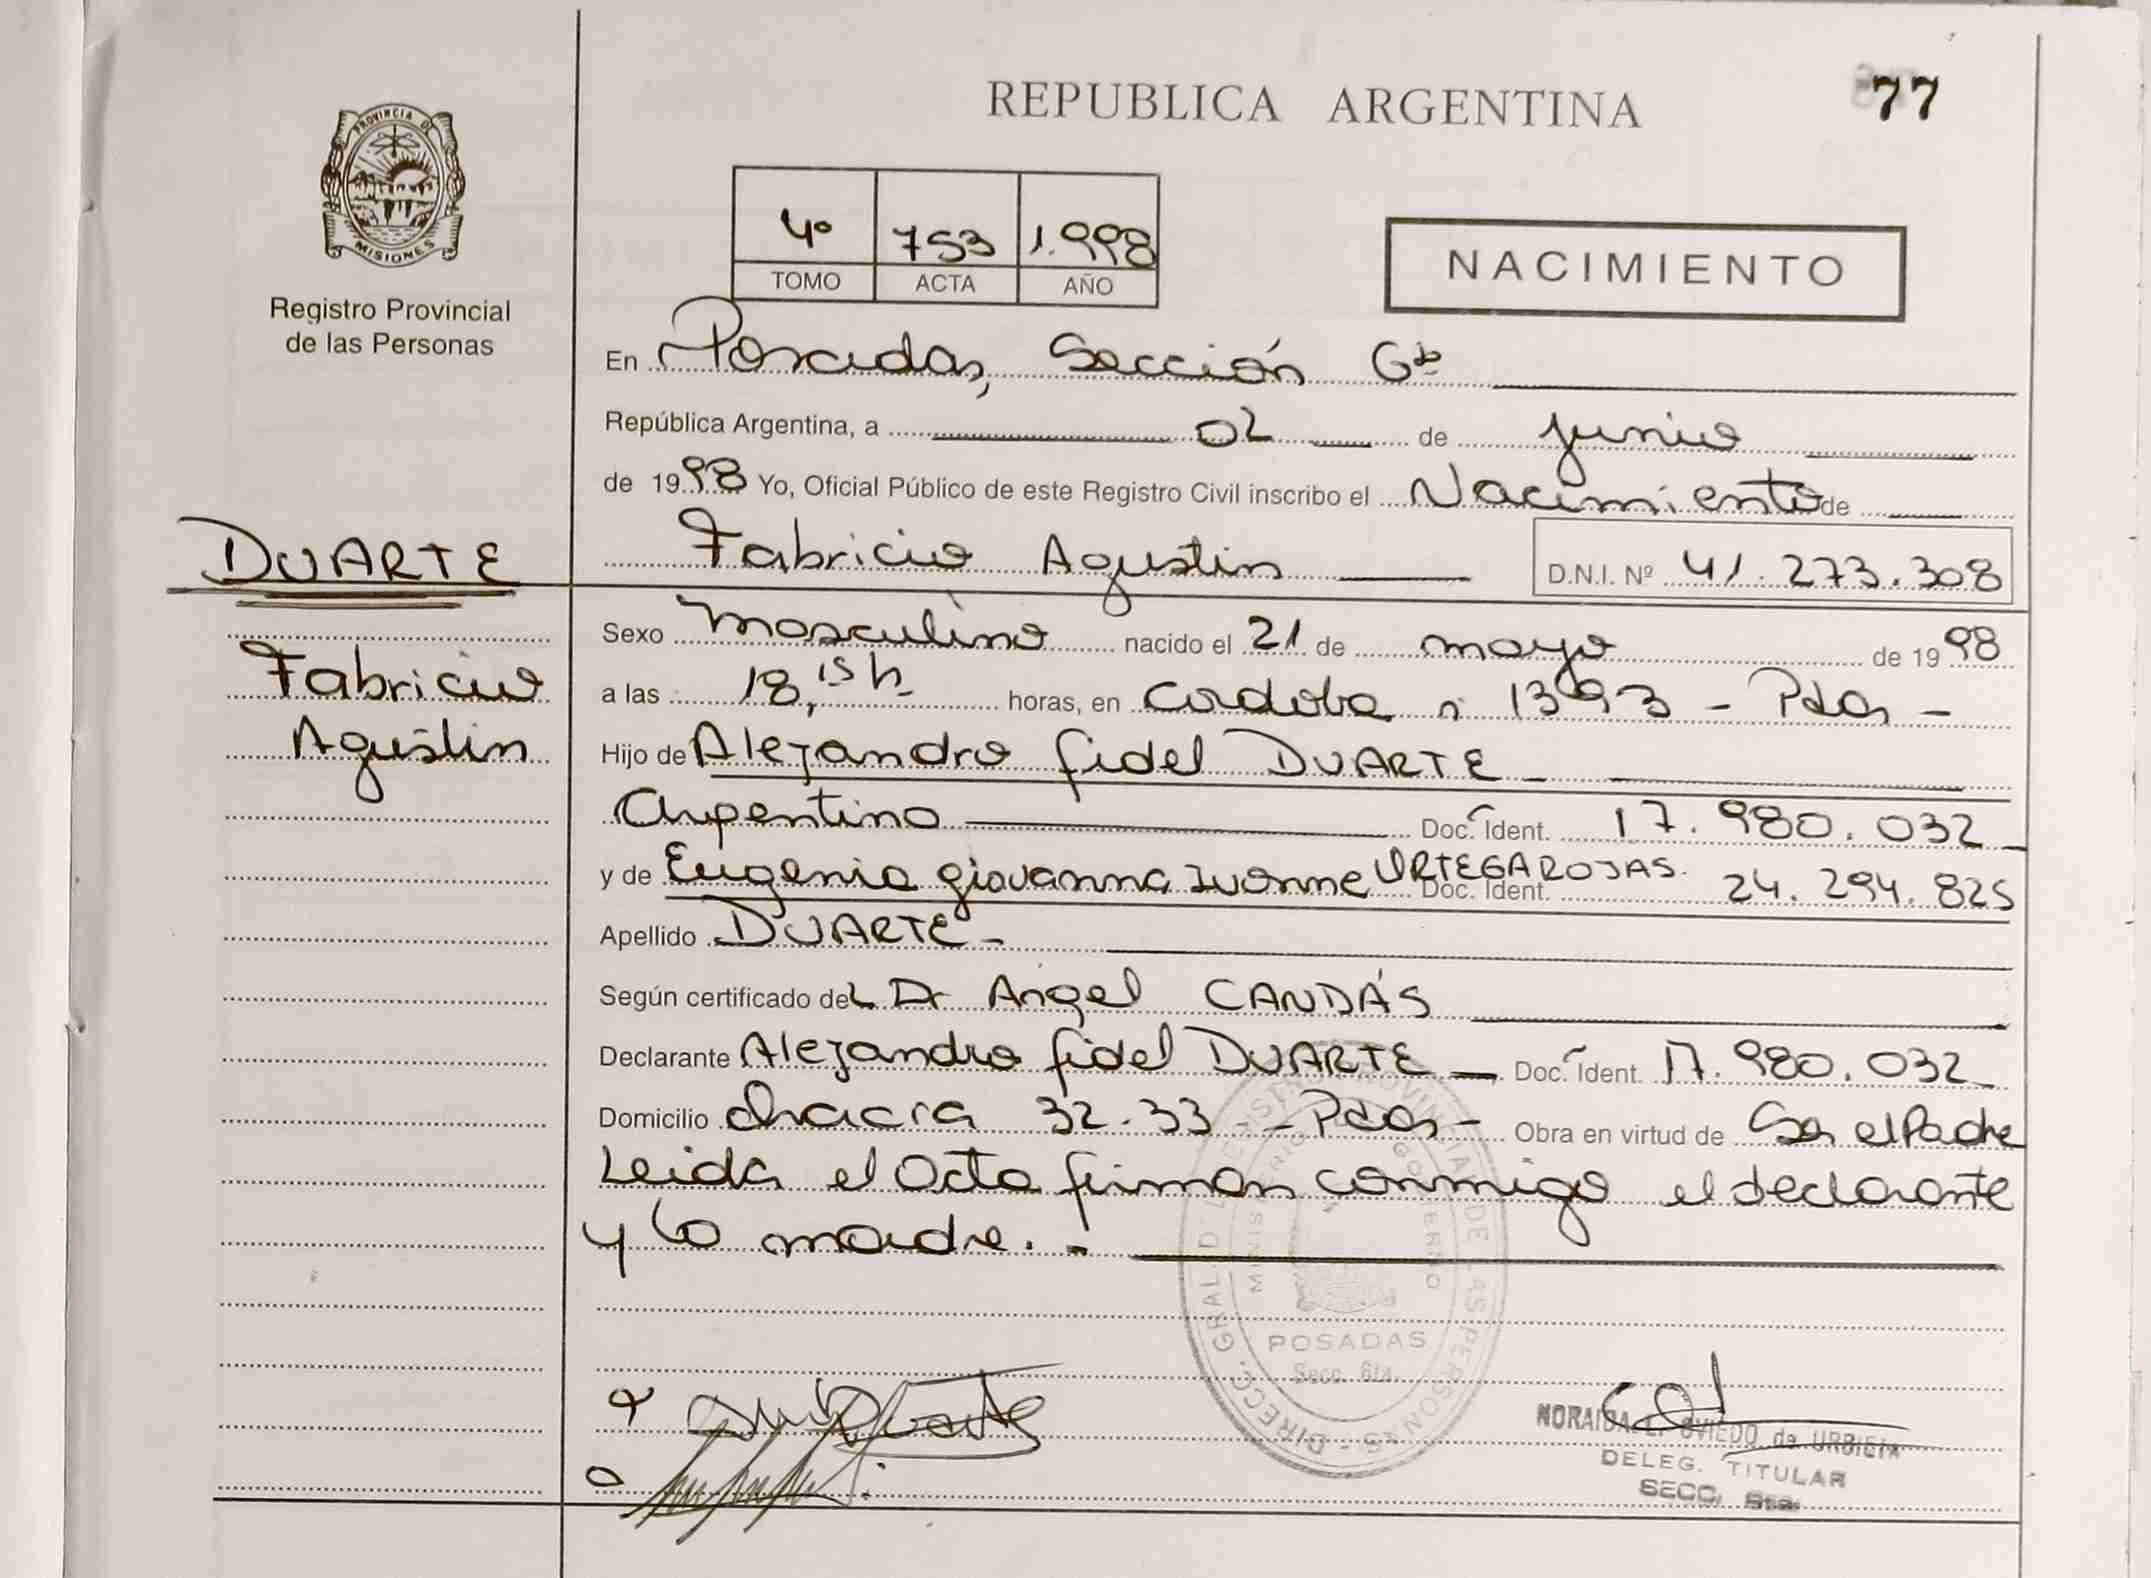 REPUBLICA ARGENTINA
77
PROVINCIA DE
MISIONES
Registro Provincial
de las Personas
4º 753 1.998
TOMO ACTA AÑO
NACIMIENTO
En Posadas, Sección 6ta
República Argentina, a 02 de junio
de 1998 Yo, Oficial Público de este Registro Civil inscribo el Nacimiento de
DUARTE
Fabricio Agustin D.N.I. Nº 41.273.308
Fabricio
Agustin
Sexo masculino nacido el 21 de mayo de 1998
a las 18,15 h. horas, en Cordoba nº 1393 - Pdas -
Hijo de Alejandro fidel DUARTE -
Argentino Doc. Ident. 17.980.032
y de Eugenia giovanna Ivonne ORTEGA ROJAS. Doc. Ident. 24.294.825
Apellido DUARTE -
Según certificado del Dr Angel CANDÁS
Declarante Alejandro fidel DUARTE Doc. Ident. 17.980.032
Domicilio chacra 32-33 - Pdas - Obra en virtud de Ser el Padre
Leida el Acta firman conmigo el declarante
y la madre. -
DIRECC. GRAL. DEL REGISTRO PROVINCIAL DE LAS PERSONAS
MINISTERIO GOBIERNO
POSADAS
Secc. 6ta.
NORAIDA L. OVIEDO de URBIETA
DELEG. TITULAR
SECC. 6ta.